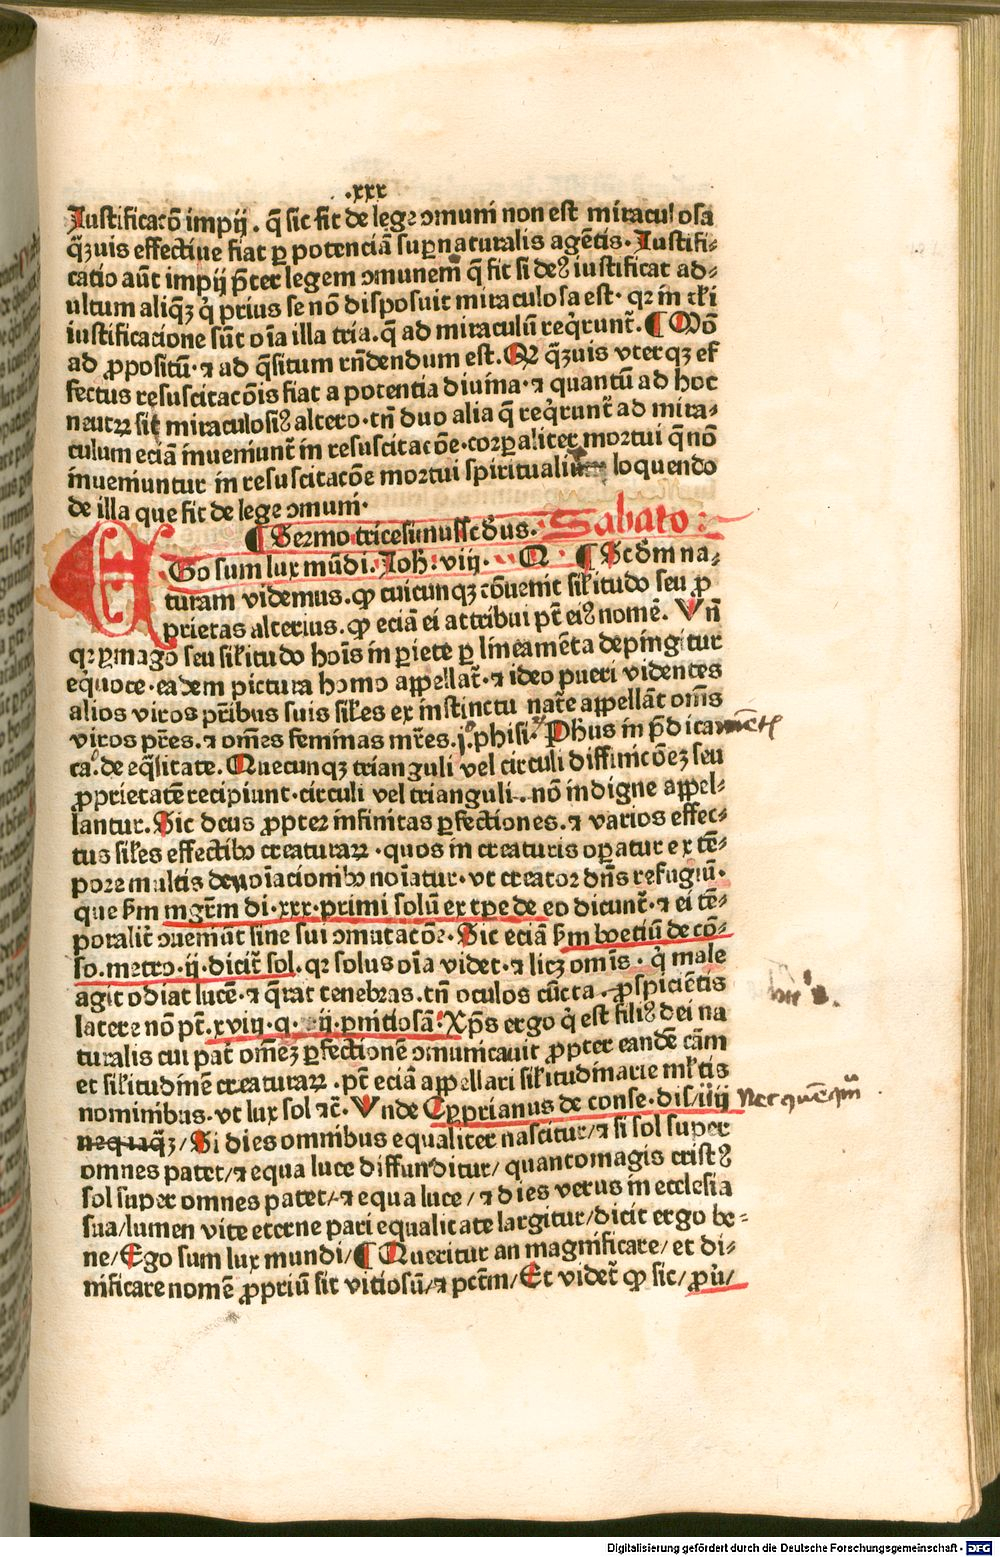 .xxx
Iustificatō impij . q̄ sic fit de lege ↄmuni non est miraculosa
q̄ꝫuis effectiue fiat ꝑ potenciā suꝑnaturalis agētis. Iustifi⸗
catio aūt impij p̄ter legem ↄmunem q̄ fit si deꝰ iustificat ad⸗
ultum aliqꝫ q̇ prius se nō disposuit miraculosa est. qꝛ in tłi
iustificacione sūt oīa illa tria. q̄ ad miraculū req̇runt̄. ¶ Mō
ad ꝓpositū. ⁊ ad q̄situm rn̄dendum est. Qꝛ q̄ꝫuis vterqꝫ ef
fectus resuscitacōis fiat a potentia diuina. ⁊ quantū ad hoc
neutꝝ sit miraculosiꝰ altero. tn̄ duo alia q̄ req̇runt̄ ad mira⸗
culum eciā inueniunt̄ in resuscitacōe. corꝑaliter mortui q̄ nō
inueniuntur in resuscitacōe mortui spiritualiter loquendo
de illa que fit de lege ↄmuni.
¶ Sermo tricesimussc̄ds. Sabato :
EGo sum lux mūdi. Joh. viij. Q ¶ Sc̄dm na⸗
turam videmus. ꝙ cuicunqꝫ cōuenit silitudo seu ꝓ
prietas alterius. ꝙ eciā ei attribui pt̄ eiꝰ nomē. Vn̄
qꝛ ymago seu silitudo hoīs in ꝑiete ꝑ lineamēta depingitur
eq̇uoce. eadem pictura homo appellat̄. ⁊ ideo pueri videntes
alios viros pr̄ibus suis siłes ex instinctu nat̄e appellāt om̄s
viros pr̄es. ⁊ om̄es feminas mr̄es. j°. phisi. Ph̄us in p̄dicamētꝭ
ca°. de eq̄litate. Quecunqꝫ trianguli vel circuli diffinicōeꝫ seu
ꝓprietatē recipiunt. circuli vel trianguli. nō indigne appel⸗
lantur. Sic deus ꝓpter infinitas ꝑfectiones. ⁊ varios effec⸗
tus siłes effectibꝰ creaturaꝝ . quos in creaturis oꝑatur ex tē⸗
pore multis denoīacionibꝰ noīatur. vt creator dn̄s refugiū.
que ẜm mgr̄m di. xxx. primi solū ex tp̄e de eo dicunt̄. ⁊ ei tē⸗
poralit̄ ↄueniūt sine sui ↄmutacōe. Sic eciā ẜm boetiū de cō⸗
so. metro. ij. dicit̄ sol. qꝛ solus oīa videt. ⁊ licꝫ omīs . q̇ male
agit odiat lucē. ⁊ q̄rat tenebras. tn̄ oculos cūcta. ꝓspiciētis
latere nō pt̄. xviij. q. ij. pnitiosā. Xp̄s ergo q̇ est filiꝰ dei na
turalis cui pat̄ om̄eꝫ ꝑfectionē ↄmunicauit ꝓpter eandē cām
et silitudinē creaturaꝝ . pt̄ eciā appellari silitudinarie młtis
nominibus. vt lux sol ⁊c̄. Vnde Cyprianus de conse. dis/iiij Nec quēqm̄
nequaq̄ꝫ / Si dies omnibus equaliter nascitur/ ⁊ si sol super
omnes patet/ ⁊ equa luce diffunditur/ quantomagis cristꝰ
sol super omnes patet/ ⁊ equa luce / ⁊ dies verus in ecclesia
sua/ lumen vite eterne pari equalitate largitur/ dicit ergo be⸗
ne/ Ego sum lux mundi/ ¶ Queritur an magnificare/ et di⸗
nificare nomē ꝓpriū sit vitiosū/ ⁊ pctm̄/ Et videt̄ ꝙ sic/ ꝓu̇/
Digitalisierung gefördert durch die Deutsche Forschungsgemeinschaft - DFG